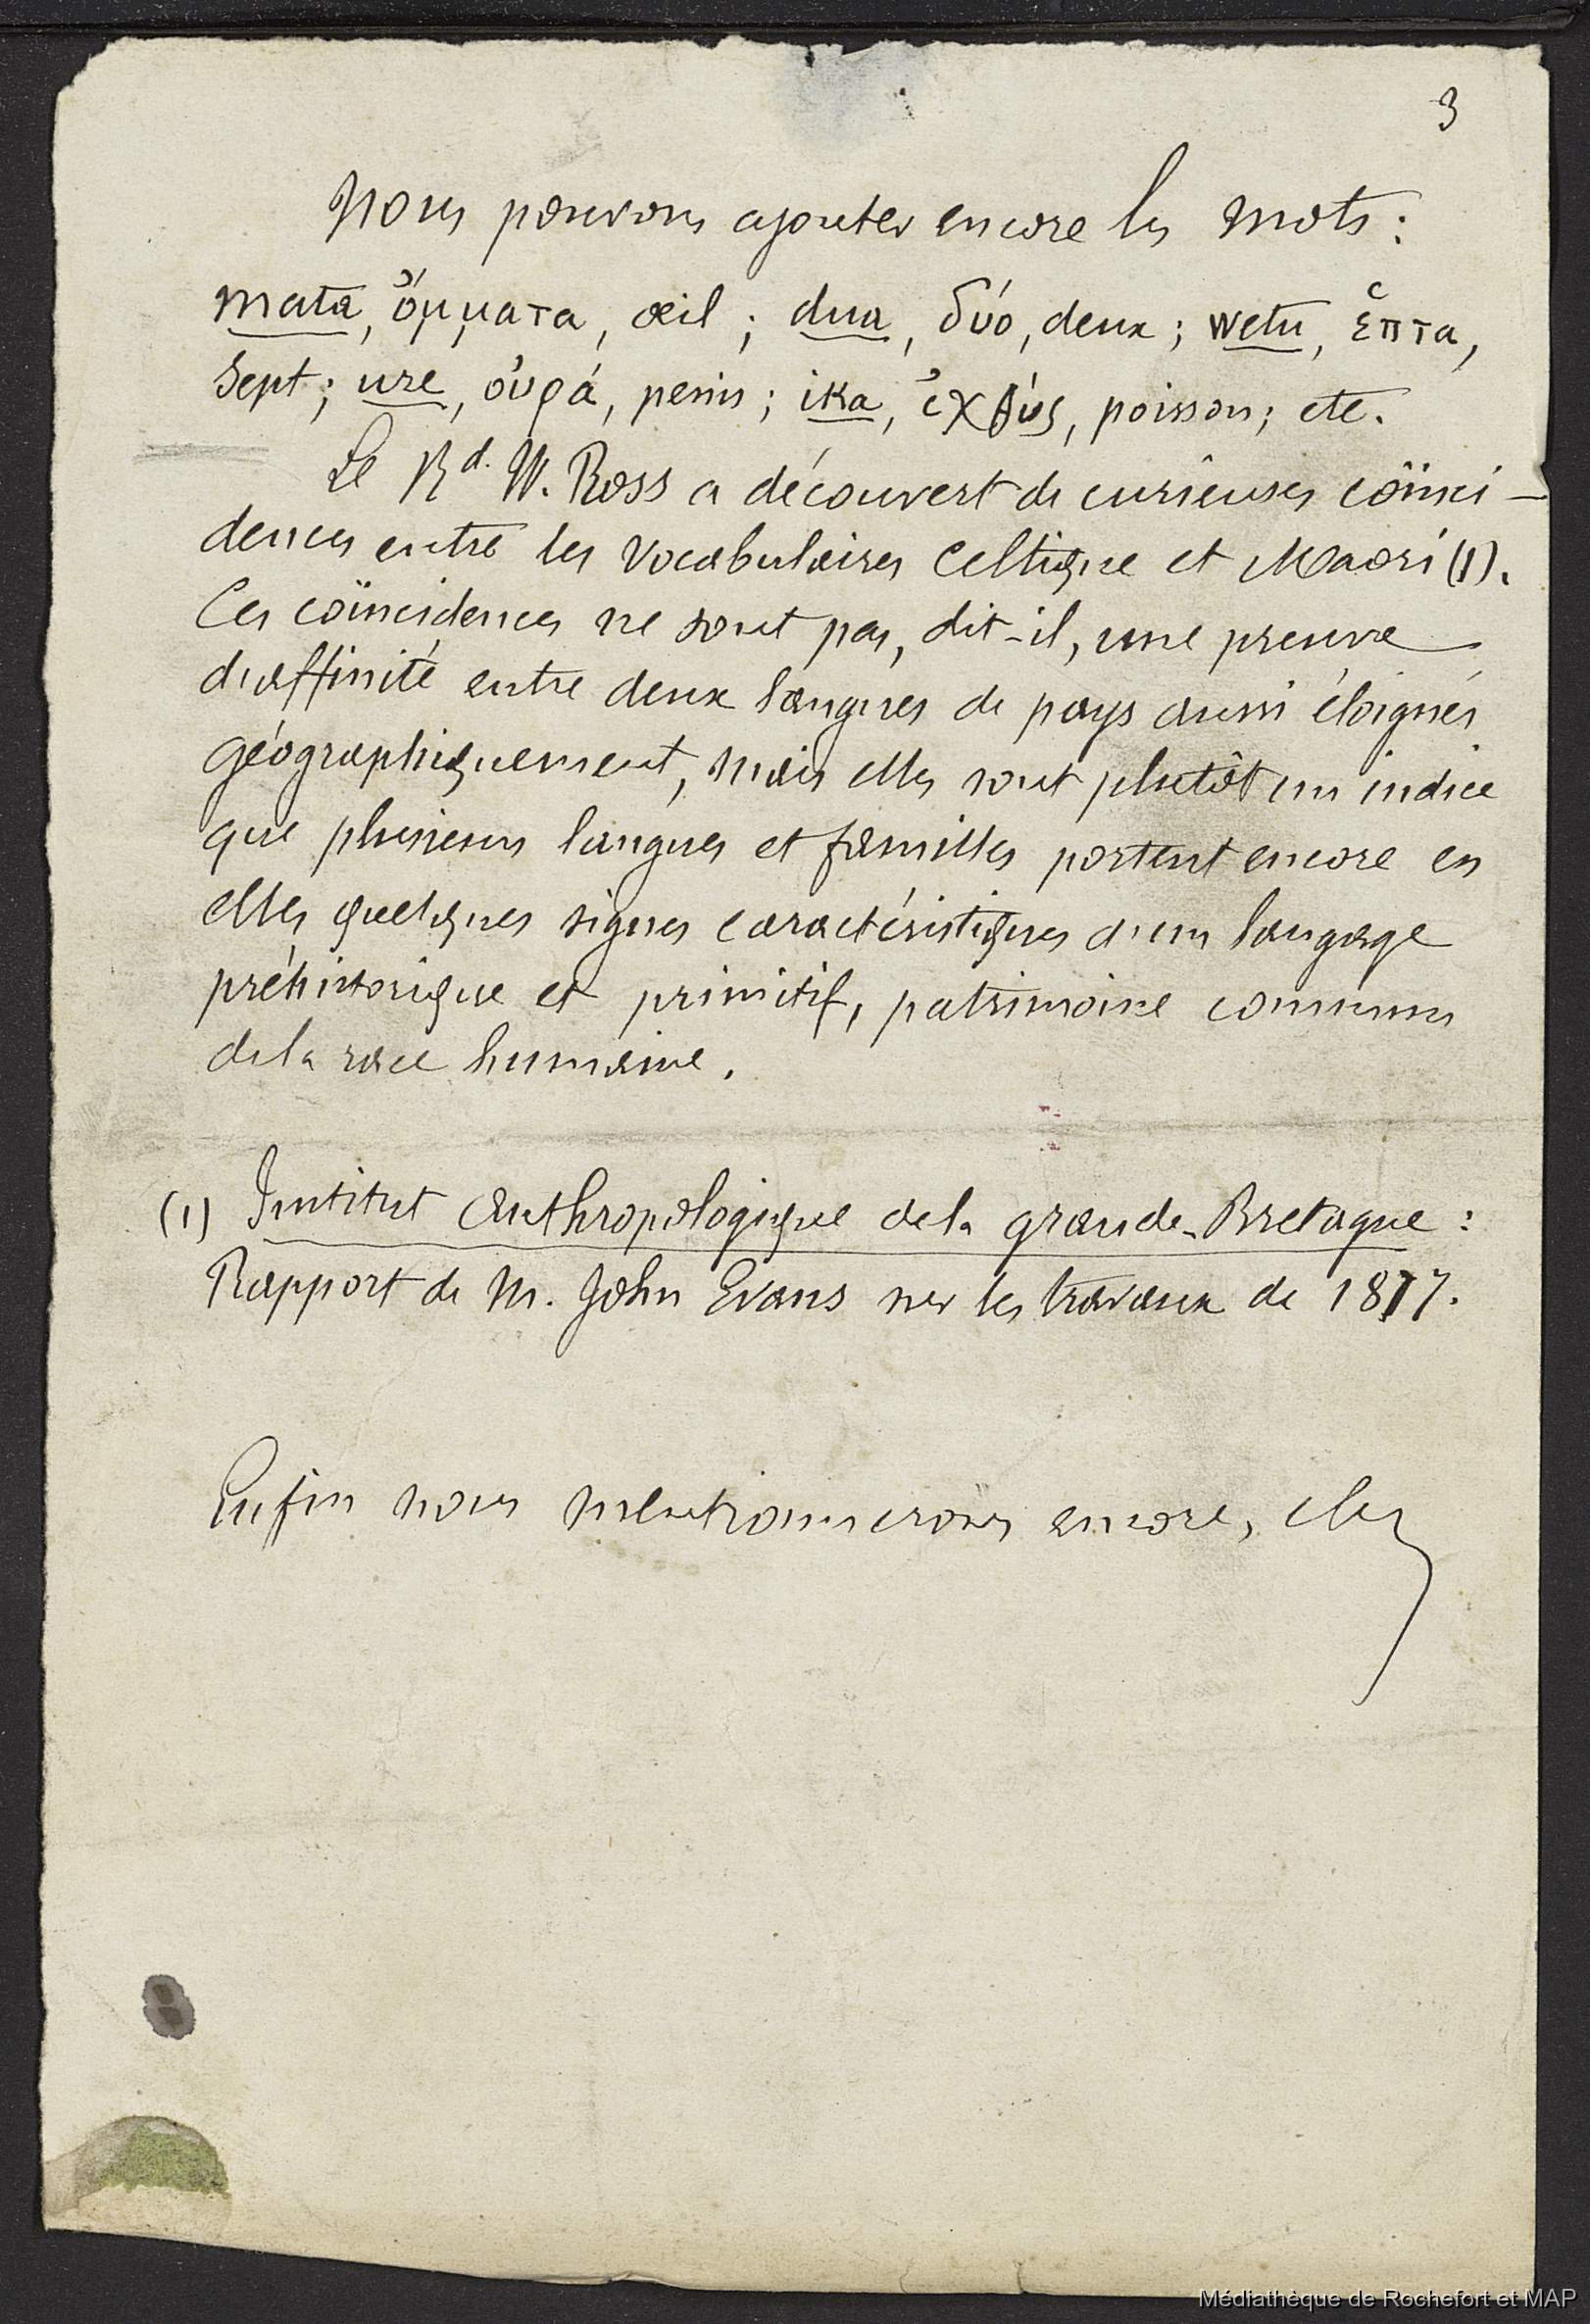 3
Nous pouvons ajouter encore les mots :
mata, ὄμματα, œil ; dua, δύο, deux ; wetu, ἑπτα,
sept ; ure, οὐρά, penis ; ika, ἰχθύς, poisson ; etc.
Le Rd. W. Ross a découvert de curieuses coïnci-
dences entre les vocabulaires Celtique et Maori (1).
Ces coïncidences ne sont pas, dit-il, une preuve
d'affinité entre deux langues de pays aussi éloignés
géographiquement, mais elles sont plutôt un indice
que plusieurs langues et familles portent encore en
elles quelques signes caractéristiques d'un langage
préhistorique et primitif, patrimoine commun
de la race humaine.
(1) Institut Anthropologique de la grande-Bretagne :
Rapport de M. John Evans sur les travaux de 1877.
Enfin nous mentionnerons encore,
Médiathèque de Rochefort et MAP